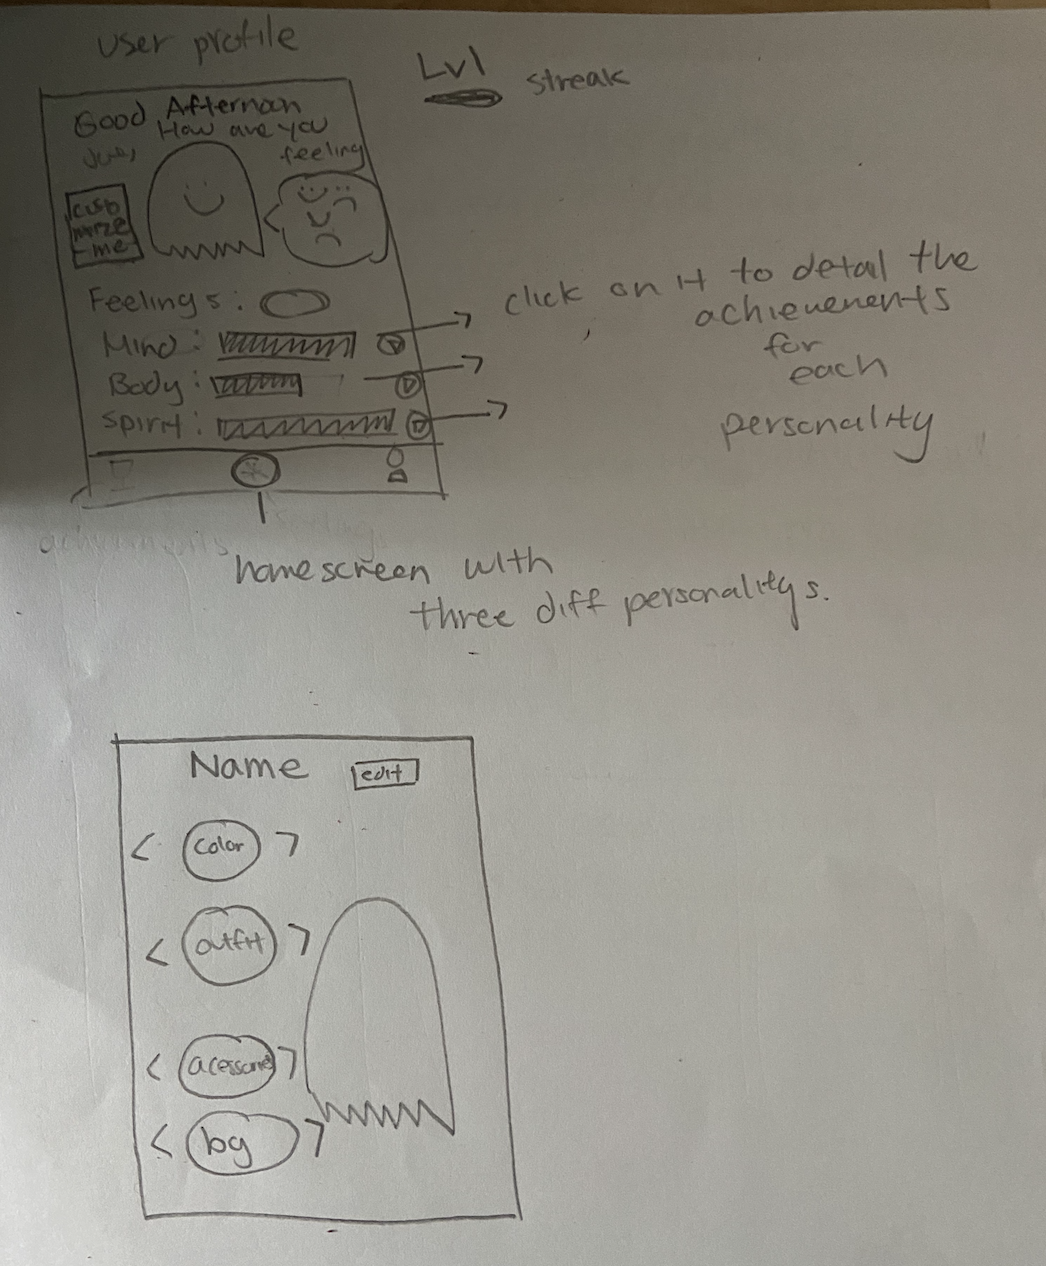 user profile
Lvl
streak
Good Afternoon
How are you
feeling
custo
mize
me
Feelings:
Mind:
Body:
Spirit:
click on it to detail the
achievements
for
each
personality
homescreen with
three diff personalitys.
Name
edit
< color >
< outfit >
< acessorie >
< bg >